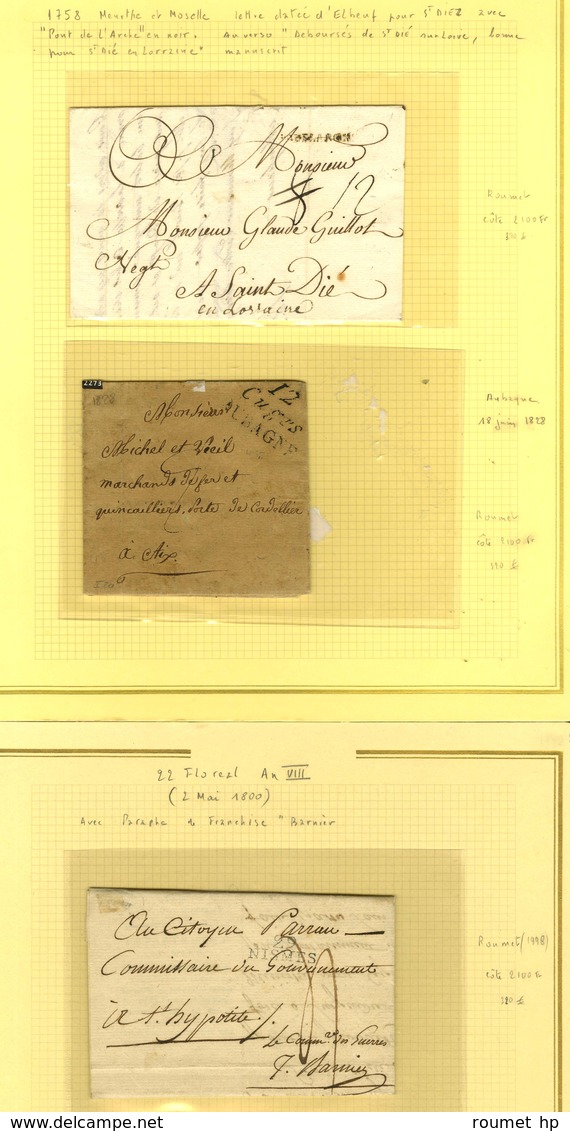 1758 Meurthe et Moselle lettre datée d'Elbeuf pour St DIEZ avec
"Pont de L'Arche" en noir. Au verso "Deboursés de St DIÉ sur Loire, bonne
pour St Dié en Lorraine" manuscrit
Monsieur
12
Monsieur Glaude Guillot
Negt
A Saint Dié
en Lorraine
Roumet
côte 2100 Fr
320 €
2273
1828
12
CUERS
AUBAGNE
Monsieur
Michel et Vieil
marchands de fer et
quincailliers, Porte de Cordellier
à Aix
Aubagne
18 juin 1828
Roumet
côte 2100 Fr
320 €
22 Floreal An VIII
(2 Mai 1800)
Avec Paraphe de Franchise "Barnier
Au Citoyen Parran
Commissaire du Gouvernement
29
NISMES
à St hypolite /.
le Comm.re des Guerres
T. Barnier
Roumet (1998)
côte 2100 Fr
320 €
roumet hp